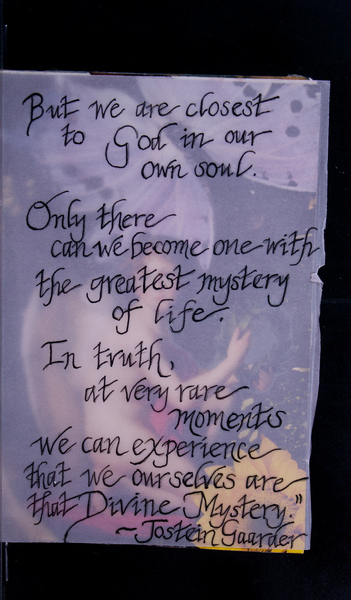 But we are closest
to God in our
own soul.
Only there
can we become one with
the greatest mystery
of life.
In truth,
at very rare
moments
we can experience
that we ourselves are
that Divine Mystery."
~Jostein Gaarder